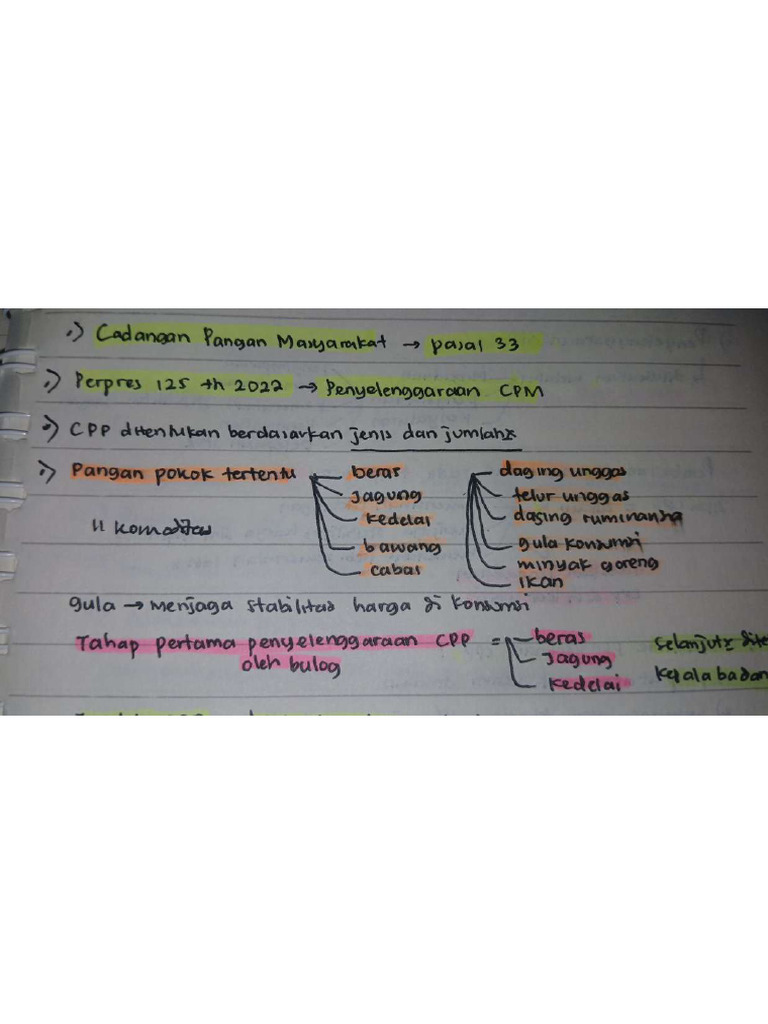 .) Cadangan Pangan Masyarakat → pasal 33
.) Perpres 125 th 2022 → Penyelenggaraan CPM
.) CPP ditentukan berdasarkan jenis dan jumlahx
.) Pangan pokok tertentu
11 komoditas
beras
Jagung
kedelai
bawang
cabai
daging unggas
telur unggas
daging ruminansia
gula konsumsi
minyak goreng
ikan
gula → Menjaga stabilitas harga di konsumsi
Tahap pertama penyelenggaraan CPP =
oleh bulog
beras
Jagung
kedelai
selanjutx dite
kepala badan